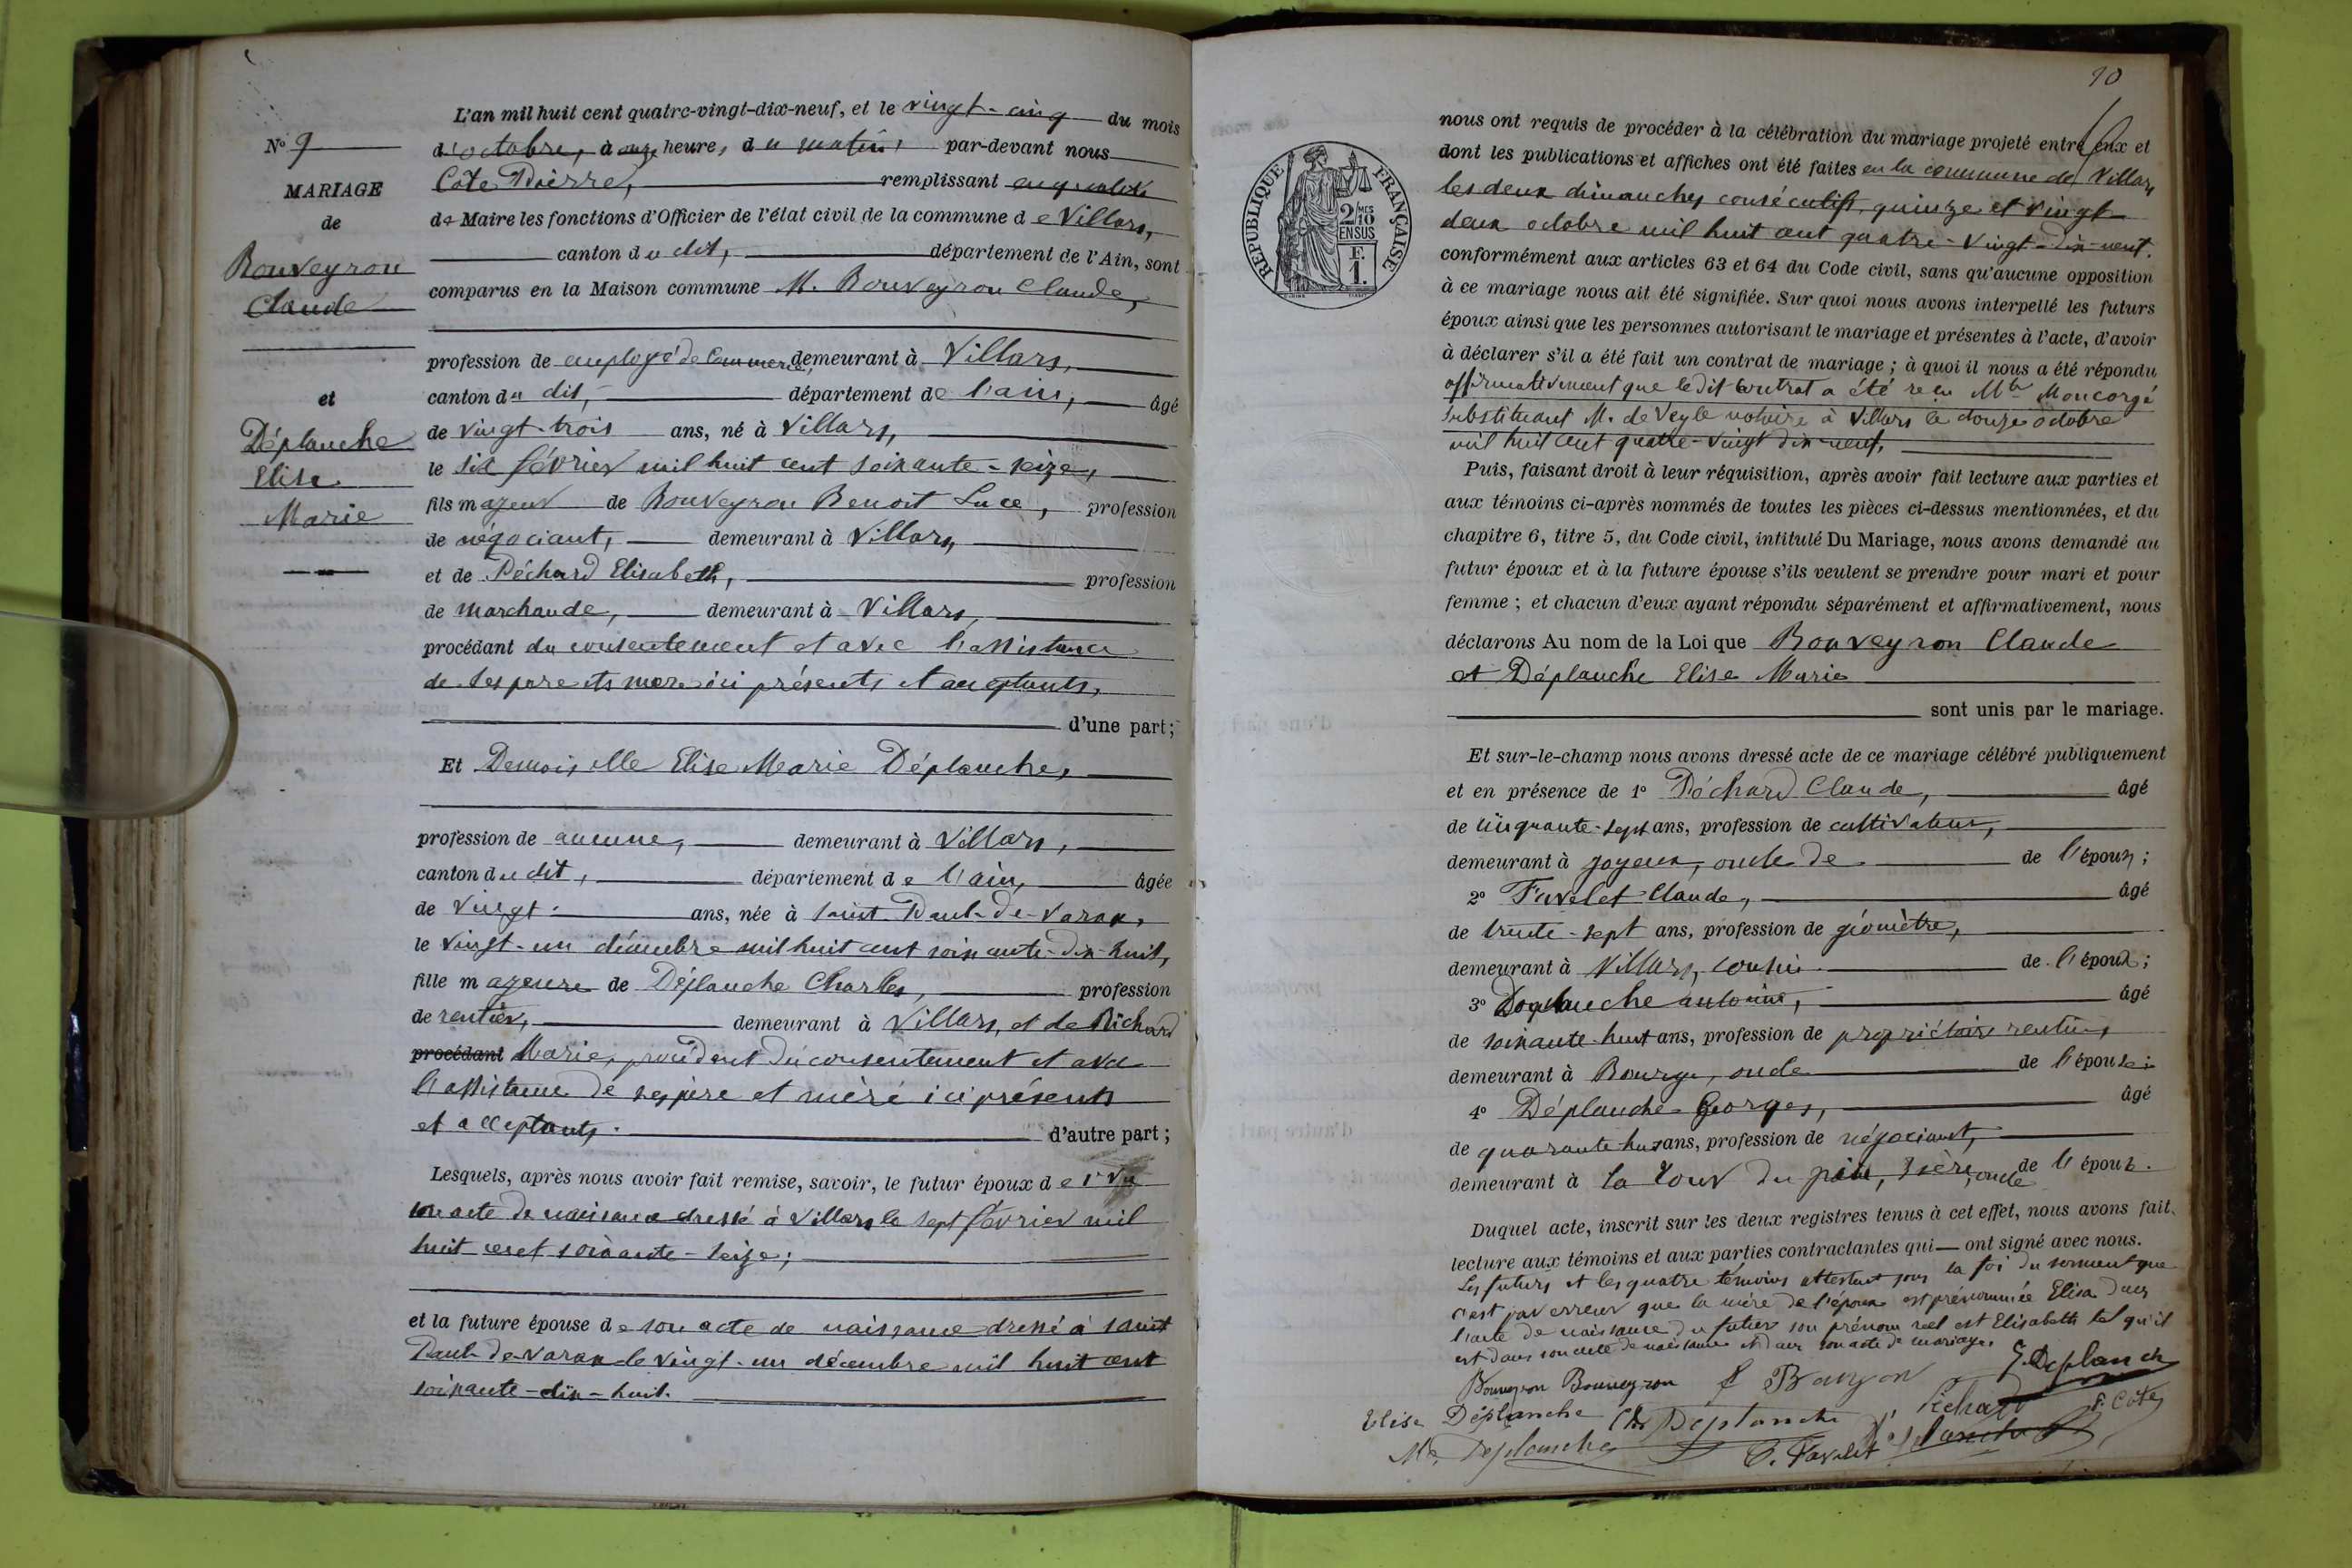 N° 9
MARIAGE
de
Bouveyron
Claude
et
Déplanche
Elise
Marie
L'an mil huit cent quatre-vingt-dix-neuf, et le vingt-cinq du mois
d'octobre, à onze heure, du matin, par-devant nous
Côte Pierre, remplissant en qualité
de Maire les fonctions d'Officier de l'état civil de la commune de Villars,
canton du dit, département de l'Ain, sont
comparus en la Maison commune M. Bouveyron Claude,
profession de employé de Commerce, demeurant à Villars,
canton du dit, département de l'ain, âgé
de vingt-trois ans, né à Villars,
le six février mil huit cent soixante-seize,
fils majeur de Bouveyron Benoit Luce, profession
de négociant, demeurant à Villars,
et de Péchard Elisabeth, profession
de marchande, demeurant à Villars,
procédant du consentement et avec l'assistance
de ses père et mère ici présents et acceptants,
d'une part;
Et Demoiselle Elise Marie Déplanche,
profession de aucune, demeurant à Villars,
canton du dit, département de l'ain, âgée
de vingt ans, née à Saint-Paul-de-Varax,
le vingt-un décembre mil huit cent soixante-dix-huit,
fille majeure de Déplanche Charles, profession
de rentier, demeurant à Villars, et de Richard
procédant Marie, procédant du consentement et avec
l'assistance de ses père et mère ici présents
et acceptants. d'autre part;
Lesquels, après nous avoir fait remise, savoir, le futur époux de
son acte de naissance dressé à Villars le sept février mil
huit cent soixante-seize;
et la future épouse de son acte de naissance dressé à Saint
Paul-de-Varax le vingt-un décembre mil huit cent
soixante-dix-huit.
10
RÉPUBLIQUE FRANÇAISE
2/10 MES
EN SUS
F.
1.
nous ont requis de procéder à la célébration du mariage projeté entre eux et
dont les publications et affiches ont été faites en la commune de Villars
les deux dimanches consécutifs, quinze et vingt
deux octobre mil huit cent quatre-vingt-dix-neuf.
conformément aux articles 63 et 64 du Code civil, sans qu'aucune opposition
à ce mariage nous ait été signifiée. Sur quoi nous avons interpellé les futurs
époux ainsi que les personnes autorisant le mariage et présentes à l'acte, d'avoir
à déclarer s'il a été fait un contrat de mariage; à quoi il nous a été répondu
affirmativement que le dit contrat a été reçu Me Moncorgé
substituant M. de Veyle notaire à Villars le douze octobre
mil huit cent quatre-vingt dix-neuf,
Puis, faisant droit à leur réquisition, après avoir fait lecture aux parties et
aux témoins ci-après nommés de toutes les pièces ci-dessus mentionnées, et du
chapitre 6, titre 5, du Code civil, intitulé Du Mariage, nous avons demandé au
futur époux et à la future épouse s'ils veulent se prendre pour mari et pour
femme; et chacun d'eux ayant répondu séparément et affirmativement, nous
déclarons Au nom de la Loi que Bouveyron Claude
et Déplanche Elise Marie
sont unis par le mariage.
Et sur-le-champ nous avons dressé acte de ce mariage célébré publiquement
et en présence de 1° Péchard Claude, âgé
de cinquante-sept ans, profession de cultivateur,
demeurant à Joyeux, oncle de de l'époux;
2° Favelet Claude, âgé
de trente-sept ans, profession de géomètre,
demeurant à Villars, cousin de l'époux;
3° Déplanche antoine, âgé
de soixante-huit ans, profession de propriétaire rentier,
demeurant à Bourg, oncle de l'épouse;
4° Déplanche Georges, âgé
de quarante-huit ans, profession de négociant,
demeurant à La Tour du pin, Isère, oncle de l'épouse.
Duquel acte, inscrit sur les deux registres tenus à cet effet, nous avons fait
lecture aux témoins et aux parties contractantes qui — ont signé avec nous.
Les futurs et les quatre témoins attestent sous la foi du serment que
c'est par erreur que la mère de l'époux est prénommée Elisa dans
l'acte de naissance du futur son prénom réel est Elisabeth tel qu'il
est dans son acte de naissance et dans son acte de mariage.
Bouveyron Bouveyron G. Deplanche
Elise Déplanche Ch Déplanche Péchard P. Côte
Me Deplanche C. Favelet